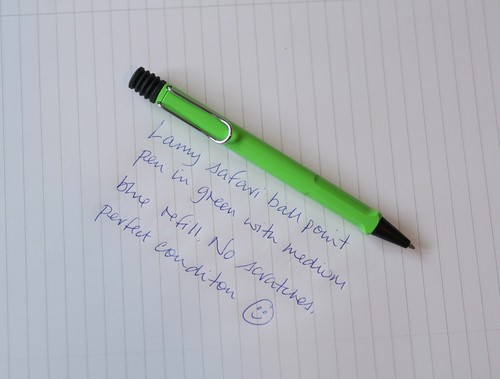 Lamy safari ball point
pen in green with medium
blue refill. No scratches.
perfect conditon ☺